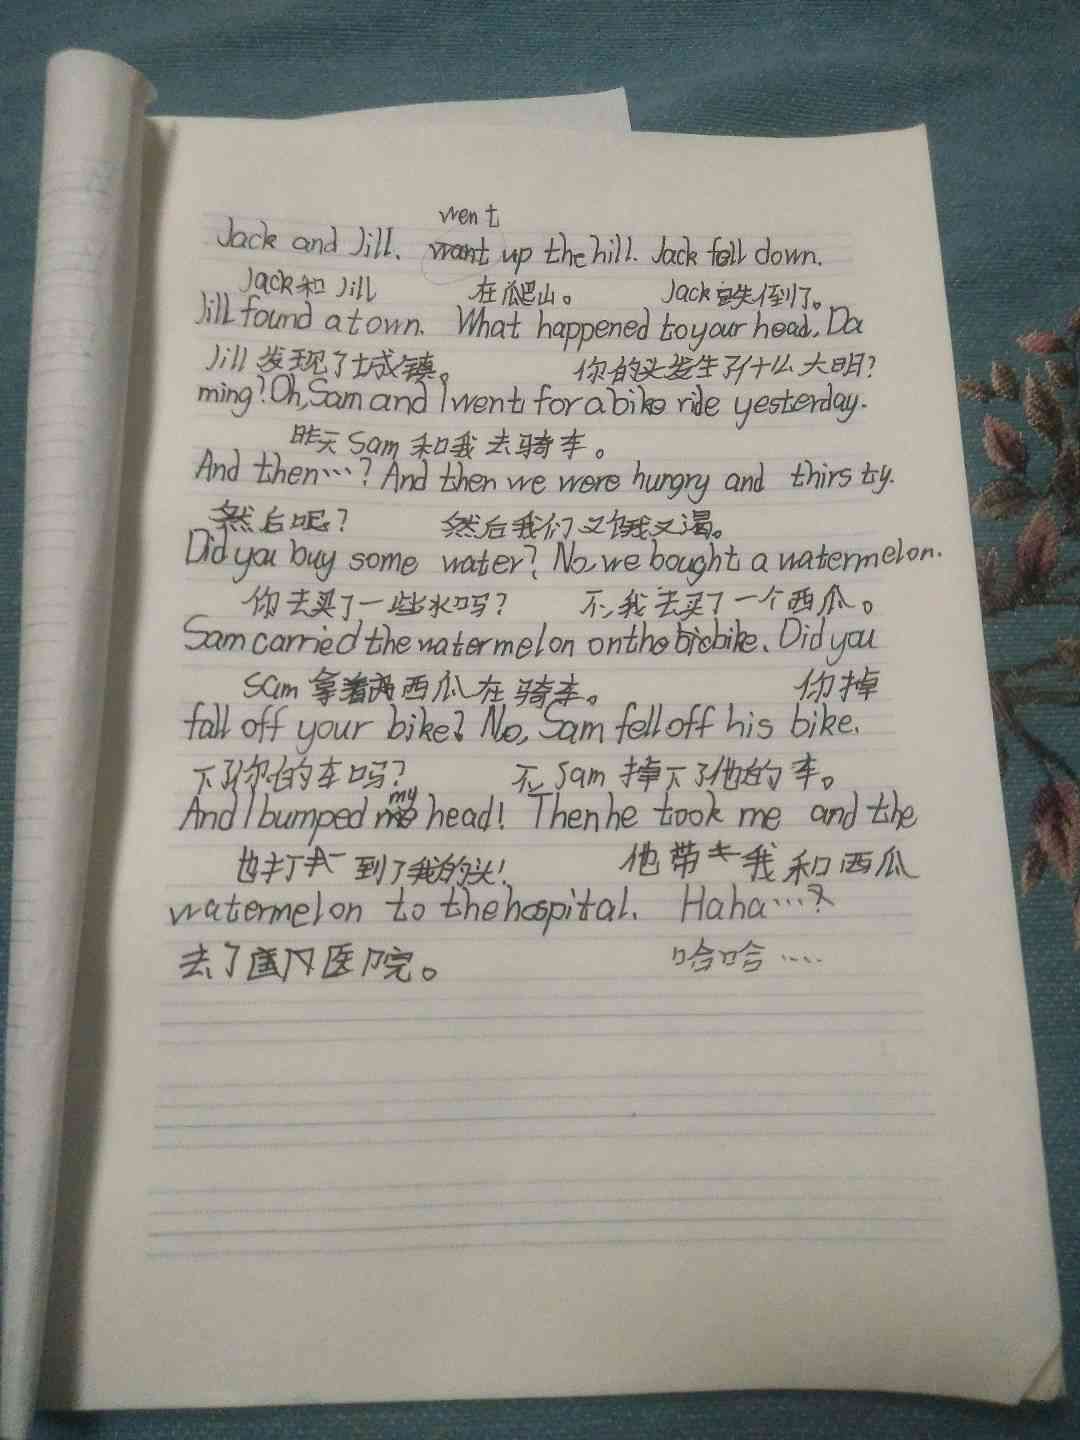 went
Jack and Jill. want up the hill. Jack fell down.
Jack和Jill 在爬山。 Jack跌倒了。
Jill found a town. What happened to your head, Da
Jill发现了城镇。 你的头发生了什么大明?
ming? Oh, Sam and I went for a bike ride yesterday.
昨天Sam和我去骑车。
And then…? And then we were hungry and thirsty.
然后呢? 然后我们又饿又渴。
Did you buy some water? No, we bought a watermelon.
你去买了一些水吗? 不,我去买了一个西瓜。
Sam carried the watermelon on the bike. Did you
Sam拿着西瓜在骑车。 你掉
fall off your bike? No, Sam fell off his bike.
下了你的车吗? 不,Sam掉下了他的车。
my
And I bumped head! Then he took me and the
也打 到了我的头! 他带 我和西瓜
watermelon to the hospital. Haha…?
去了 医院。 哈哈……